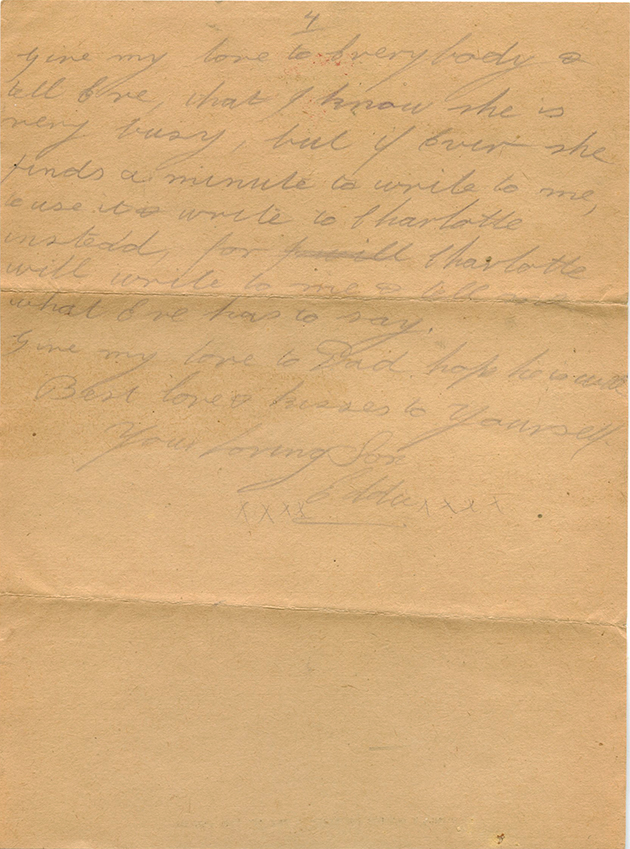 4
Give my love to Everybody &
tell Eve, that I know she is
very busy, but if Ever she
finds a minute to write to me,
to use it to write to Charlotte
instedd, for will Charlotte
will write to me & tell me
what Eve has to say.
Give my love to Dad hope he is well
Best love & kisses to Yourself
Your loving Son
xxxx Eddie xxxx